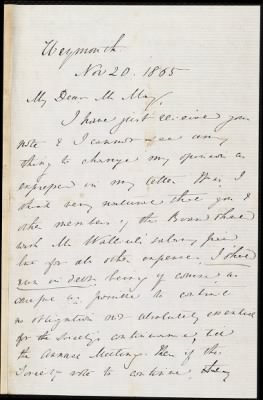 Weymouth
Nov 20. 1865
My Dear Mr May,
I have just received your
note & I cannot see any
thing to change my opinion as
expressed in my letter.
think very natural that you &
other members of the Board should
wish Mr Wallcut's salary paid
but for all other expense, I should
run in debt, being of course as
careful as possible to contract
no obligation not absolutely essential
for the Society's continuance, till
the annual Meeting. Then if the
Society vote to continue,